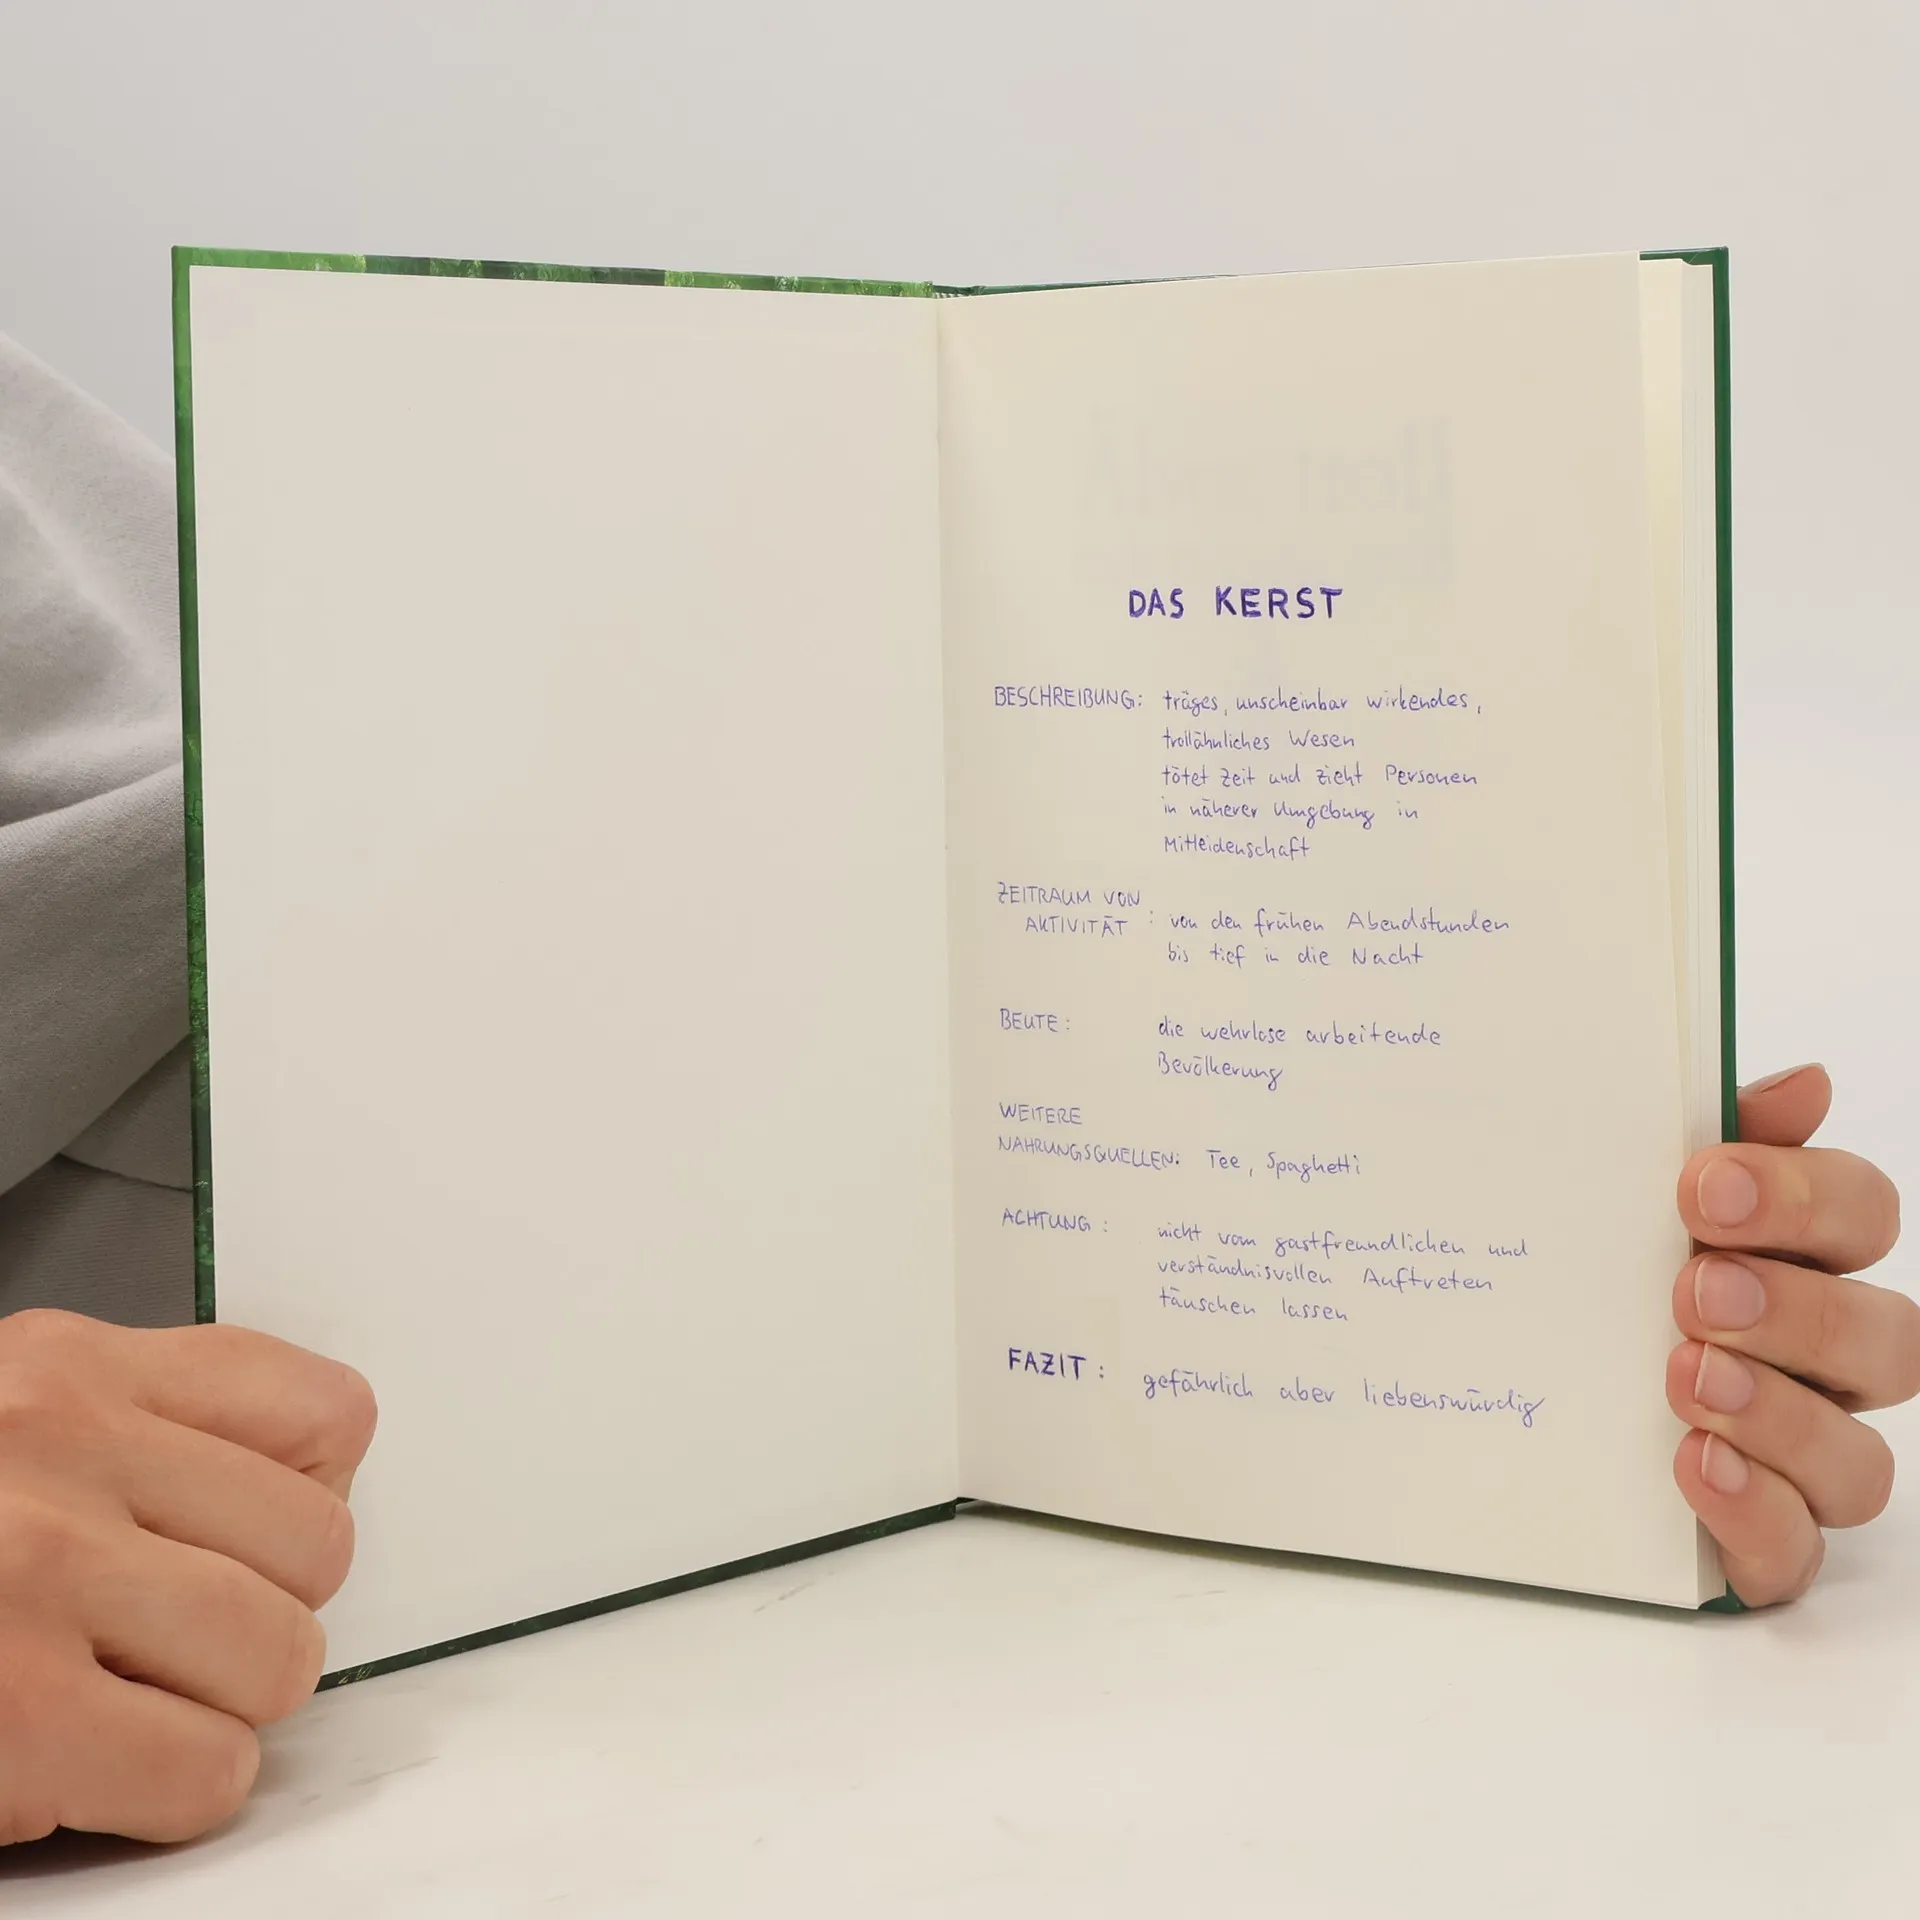 DAS KERST
BESCHREIBUNG: träges, unscheinbar wirkendes,
trollähnliches Wesen
tötet Zeit und zieht Personen
in näherer Umgebung in
Mitleidenschaft
ZEITRAUM VON
AKTIVITÄT : von den frühen Abendstunden
bis tief in die Nacht
BEUTE: die wehrlose arbeitende
Bevölkerung
WEITERE
NAHRUNGSQUELLEN: Tee, Spaghetti
ACHTUNG: nicht vom gastfreundlichen und
verständnisvollen Auftreten
täuschen lassen
FAZIT: gefährlich aber liebenswürdig